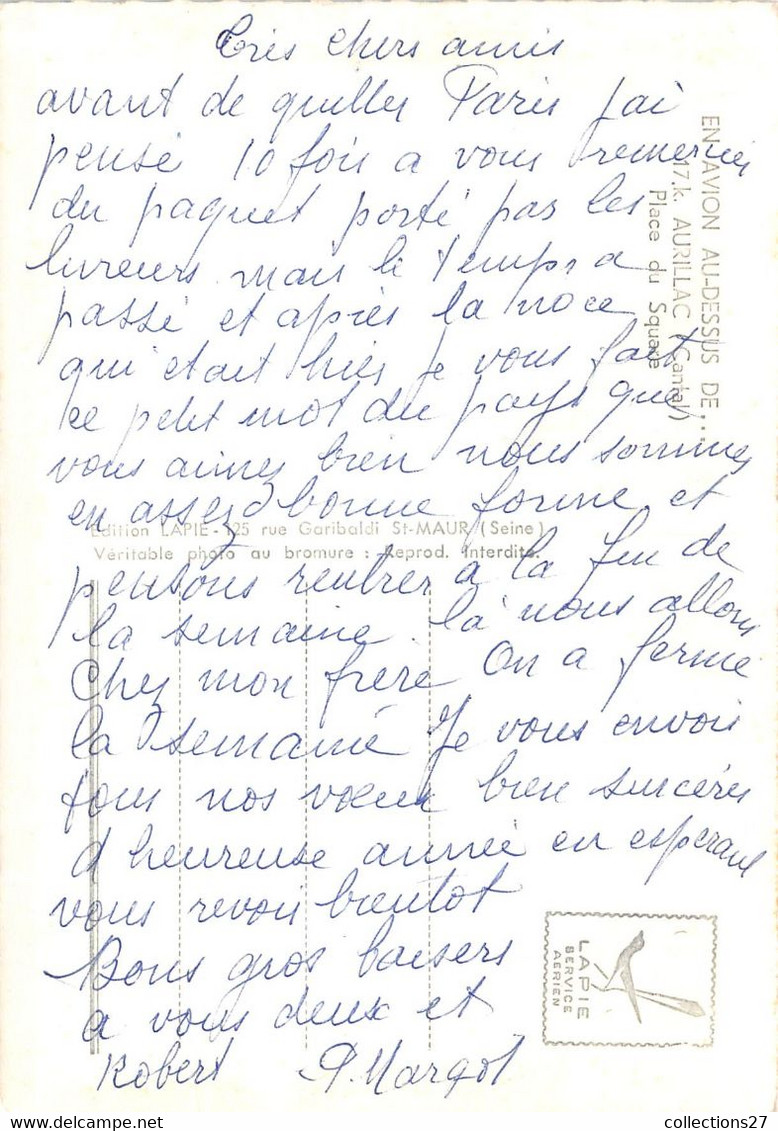 très chers amis
avant de quiller Paris jai
pensé 10 fois a vous remercier
du paquet porté par les
livreurs mais le temps a
passé et après la noce
qui était hier je vous fait
ce petit mot du pays que
vous aimez bien nous sommes
en assez bonne forme et
pensons rentrer a la fin de
la semaine. là nous allons
Chez mon frère On a fermé
la semaine Je vous envoie
tous nos vœux bien sincères
d heureuse année en esperant
vous revoir bientot
Bons gros baisers
a vous deux et
Robert P. Margot
EN AVION AU-DESSUS DE...
17.k. AURILLAC (Cantal)
Place du Square
Edition LAPIE - 325 rue Garibaldi St-MAUR (Seine)
Véritable photo au bromure : Reprod. Interdite.
LAPIE
SERVICE
AERIEN
collections27